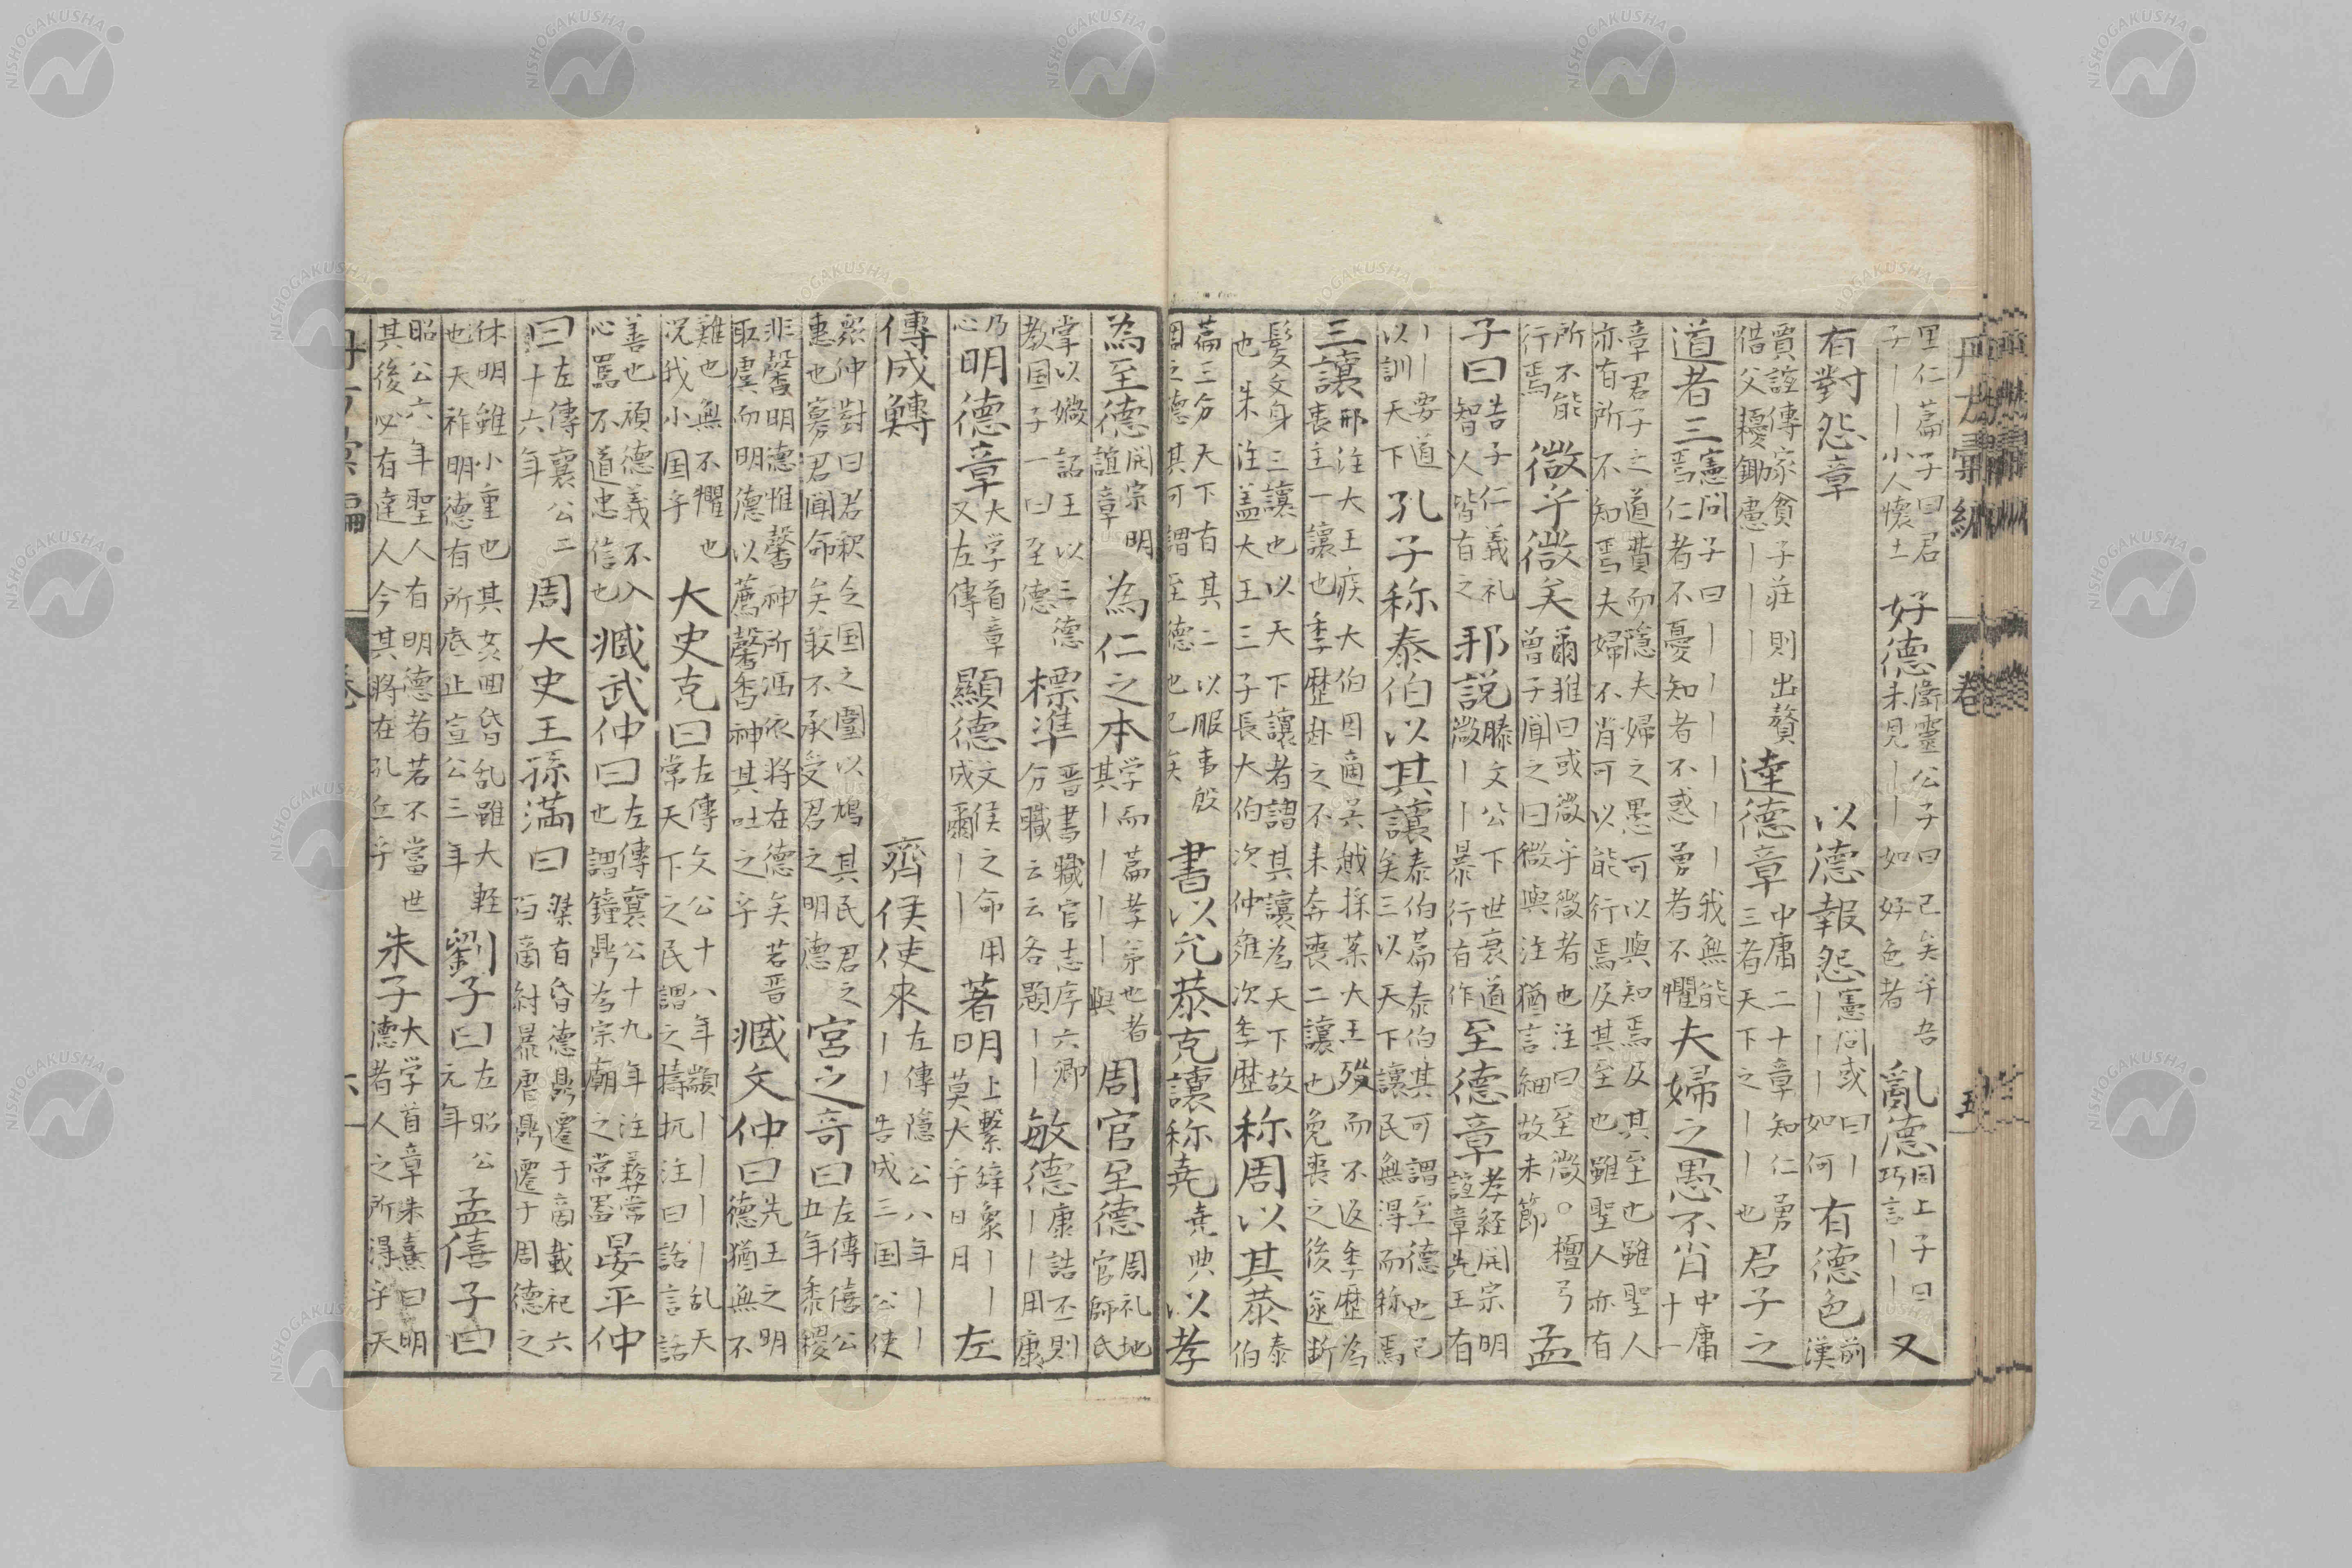 里仁篇子曰君子丨丨小人懷土 好德 衛靈公子曰已矣乎吾未見丨丨如好色者 亂德 同上子曰巧言丨丨 又
有對怨章 以德報怨 憲問或曰丨丨丨丨如何 有德色 前漢
賈誼傳家貧子莊則出贅借父耰鋤慮丨丨丨 達德章 中庸二十章知仁勇三者天下之丨丨也 君子之
道者三 憲問子曰丨丨丨丨丨丨我無能焉仁者不憂知者不惑勇者不懼 夫婦之愚不肖 中庸十一
章君子之道費而隱夫婦之愚可以與知焉及其至也雖聖人亦有所不知焉夫婦不肖可以能行焉及其至也雖聖人亦有
所不能行焉 微乎微矣 爾雅曰或微乎微者也注曰至微○檀弓曾子聞之曰微與注猶言細故末節 孟
子曰 告子仁義礼智人皆有之 邪說 滕文公下世衰道微丨丨暴行有作 至德章 孝経開宗明誼章先王有
丨丨要道以訓天下 孔子称泰伯以其讓 泰伯篇泰伯其可謂至德也已矣三以天下讓民無淂而称焉
三讓 邢注大王疾大伯因適呉越採薬大王殁而不返季歴為喪主一讓也季歴赴之不来奔喪二讓也免喪之後遂断
髮文身三讓也以天下讓者謂其讓為天下故也 朱注盖大王三子長大伯次仲雍次季歴 称周以其恭 泰伯
篇三分天下有其二以服事殷周之德其可謂至德也已矣 書以允恭克讓称尭 尭典 以孝
為至德 開宗明誼章 為仁之本 学而篇孝弟也者其丨丨丨丨與 周官至德 周礼地官師氏
掌以媺詔王以三德教国子一曰至德 標準 晋書職官志序六卿分職云云各題丨丨 敏德 康誥丕則丨丨用康
乃心 明德章 大学首章又左傳 顯德 文侯之命用成爾丨丨 著明 上繋辞象丨丨莫大乎日月 左
傳成鱄 齊侯使來 左傳隠公八年丨丨丨丨告成三国公使
衆仲對曰君釈令国之圉以鳩其民君之惠也寡君聞命矣敢不承受君之明德 宮之奇曰 左傳僖公五年黍稷
非馨明德惟馨神所馮依将在德矣若晋取虞而明德以薦馨香神其吐之乎 臧文仲曰 先王之明德猶無不
難也無不懼也况我小国乎 大史克曰 左傳文公十八年顓丨丨丨丨乱天常天下之民謂之擣杌注曰話言話
善也頑德義不入心罵不道忠信也 臧武仲曰 左傳襄公十九年注彝常也謂鐘鼎為宗廟之常器 晏平仲
曰 左傳襄公二十六年 周大史王孫満曰 桀有昏德鼎遷于商載祀六百商紂暴虐鼎遷于周德之
休明雖小重也其姦回昏乱雖大軽也天祚明德有所底止宣公三年 劉子曰 左昭公元年 孟僖子曰
昭公六年聖人有明德者若不當世其後必有達人今其將在孔丘乎 朱子 大学首章朱熹曰明德者人之所淂乎天